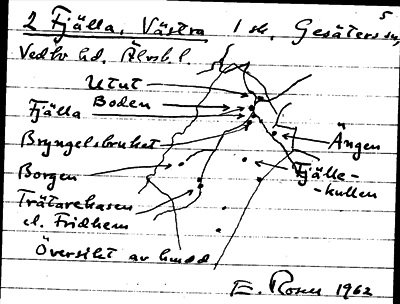 5
2 Fjälla, Västra 1 sk. Gesäters sn,
Vedbo hd. Älvsb. l.
Utut
Boden
Fjälla
Bryngelsbruket
Ängen
Borgen
Fjälle-
-kullen
Trätarehasen
el. Fridhem
Översikt av
E. Rosen 1962